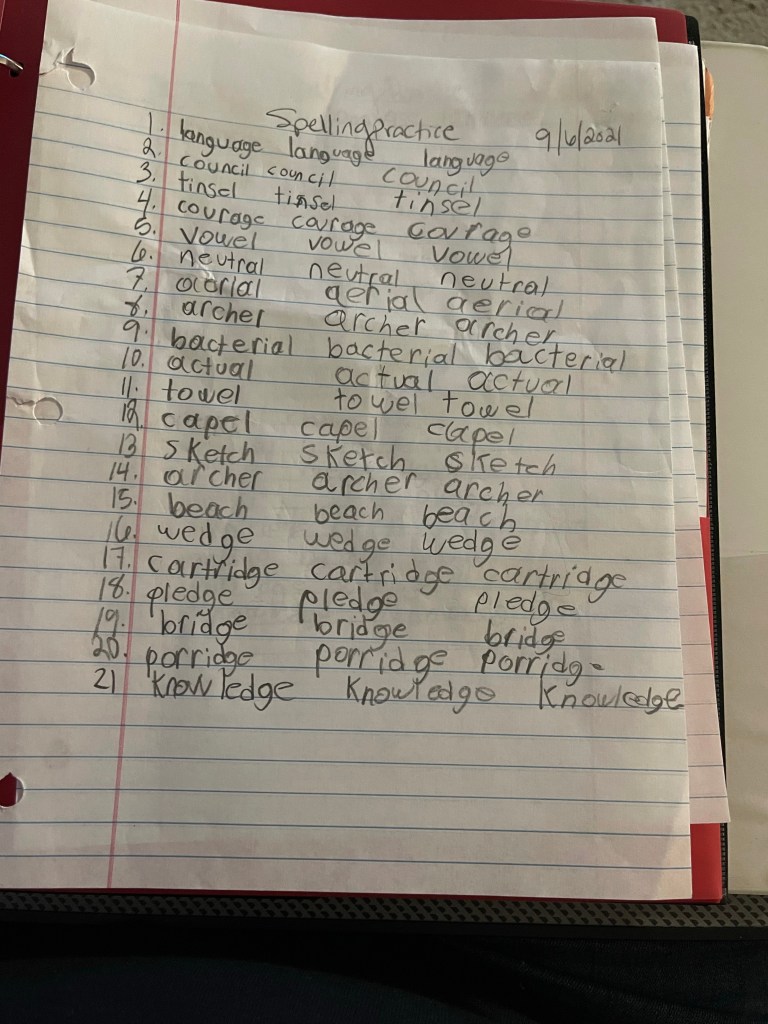 Spelling practice 9/6/2021
1. language language language
2. council council council
3. tinsel tinsel tinsel
4. courage courage courage
5. vowel vowel vowel
6. neutral neutral neutral
7. aerial aerial aerial
8. archer archer archer
9. bacterial bacterial bacterial
10. actual actual actual
11. towel towel towel
12. capel capel capel
13 sketch sketch sketch
14. archer archer archer
15. beach beach beach
16. wedge wedge wedge
17. cartridge cartridge cartridge
18. pledge pledge pledge
19. bridge bridge bridge
20. porridge porridge porridge
21 knowledge knowledge knowledge